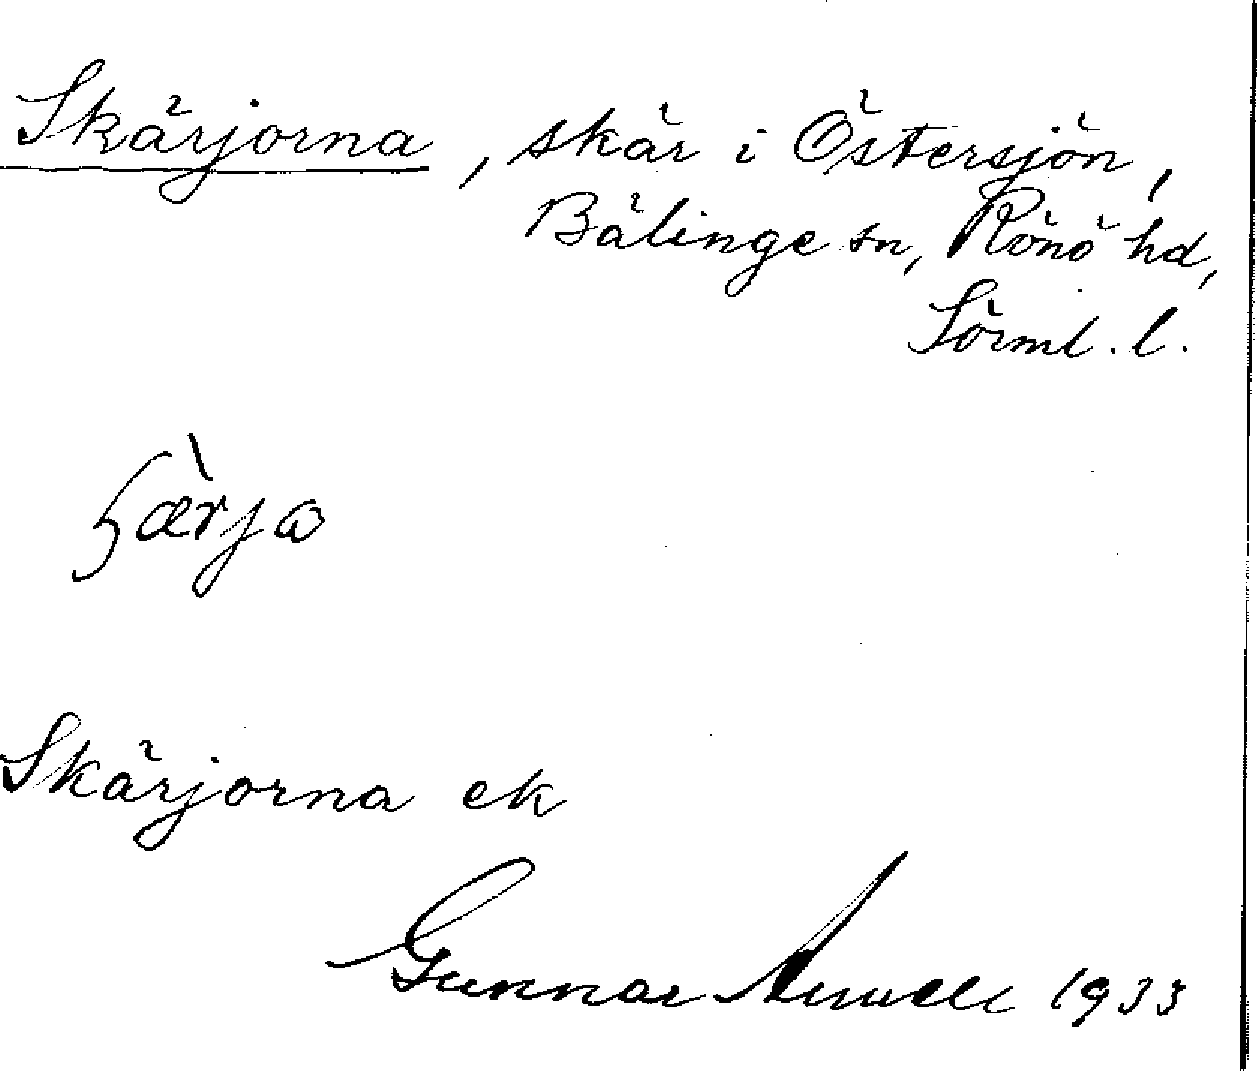 Skärjorna, skär i Östersjön,
Bälinge sn, Rönö hd,
Sörml. l.
Skärjorna ek
Gunnar 1933